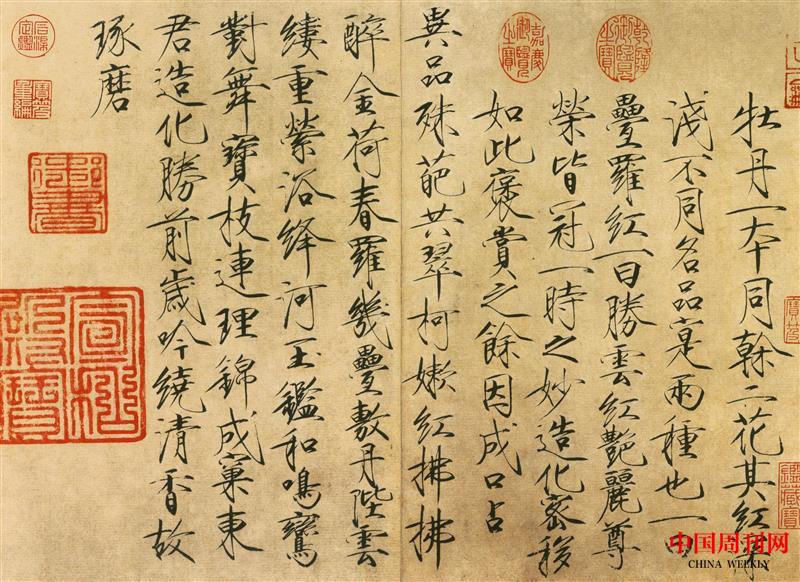 牡丹一本同榦二花其紅深
淺不同名品寔兩種也一曰
疊羅紅一曰勝雲紅艷麗尊
榮皆冠一時之妙造化密移
如此褒賞之餘因成口占
異品殊葩共翠柯嫩紅拂拂
醉金荷春羅幾疊敷丹陛雲
縷重縈浴絳河玉鑑和鳴鸞
對舞寶枝連理錦成窠東
君造化勝前歲吟繞清香故
琢磨
乾隆御覽之寶
嘉慶御覽之寶
石渠定鑑
寶笈重編
御書
中国周刊网
CHINA WEEKLY